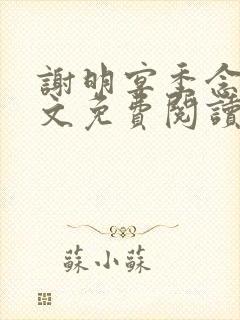 謝明宴季念
文免費閱讀
蘇小蘇